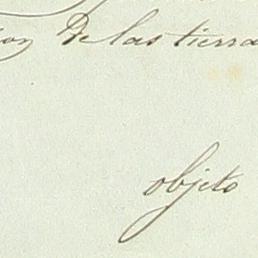 on de las tierra
objeto